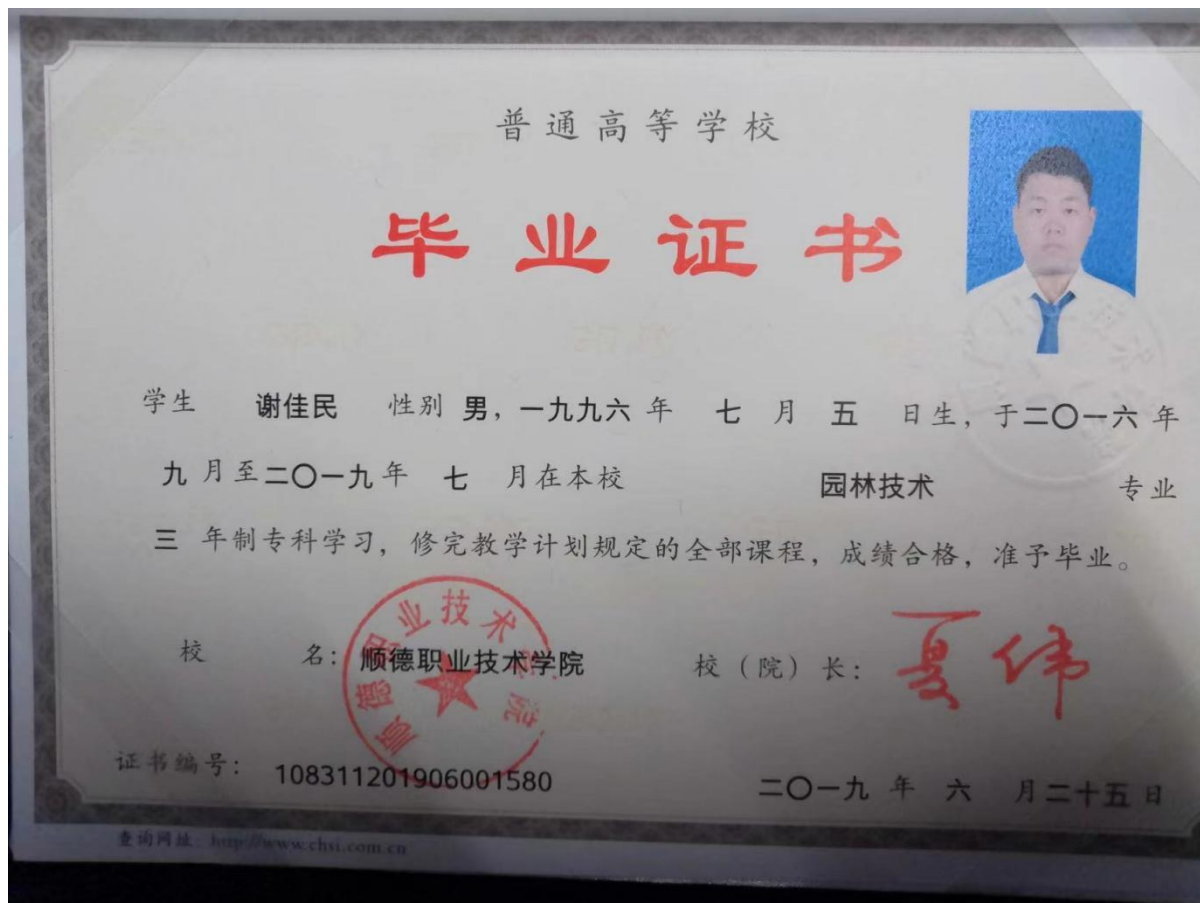 普通高等学校
毕业证书
学生 谢佳民 性别 男，一九九六 年 七 月 五 日生，于二〇一六 年
九 月至二〇一九 年 七 月在本校 园林技术 专业
三 年制专科学习，修完教学计划规定的全部课程，成绩合格，准予毕业。
校 名：顺德职业技术学院 校（院）长：夏伟
顺德职业技术学院
证书编号：108311201906001580 二〇一九 年 六 月 二十五 日
查询网址：http://www.chsi.com.cn